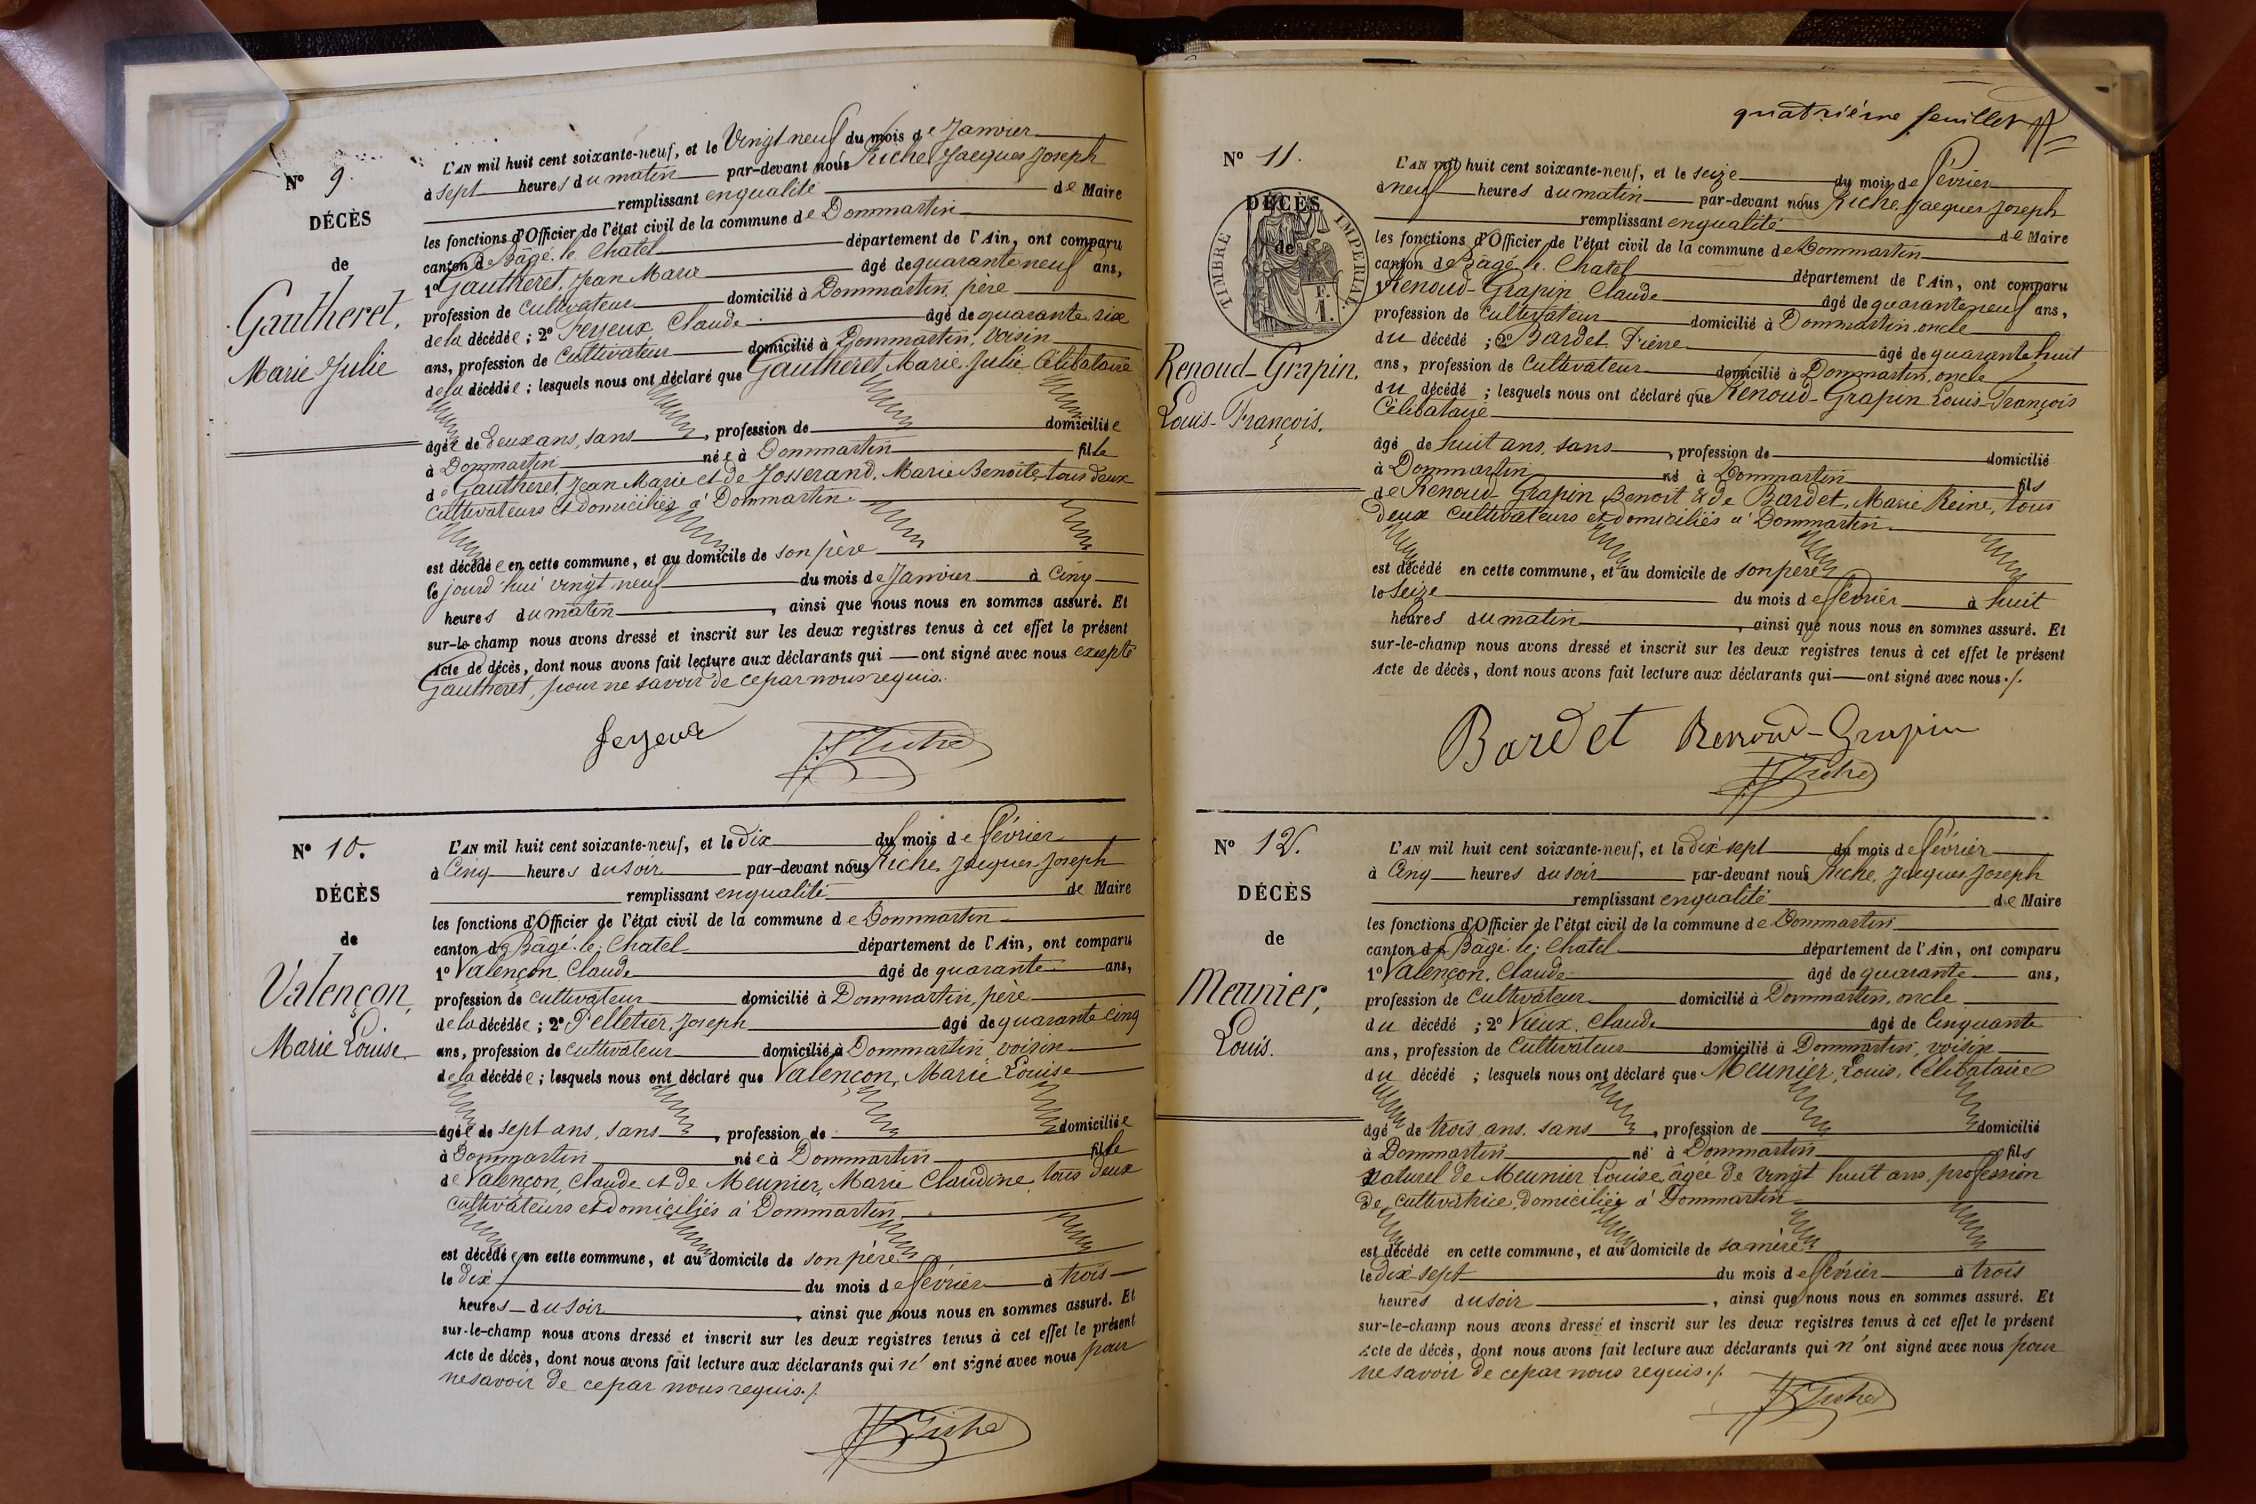 N° 9.
DÉCÈS
de
Gautheret,
Marie Julie
L'AN mil huit cent soixante-neuf, et le Vingt neuf du mois de Janvier
à sept heures du matin par-devant nous Riche, Jacques Joseph
remplissant en qualité de Maire
les fonctions d'Officier de l'état civil de la commune de Dommartin
canton de Bâgé-le-Chatel département de l'Ain, ont comparu
1° Gautheret, Jean Marie âgé de quarante neuf ans,
profession de cultivateur domicilié à Dommartin, père
de la décédée ; 2° Feyeux, Claude âgé de quarante six
ans, profession de Cultivateur domicilié à Dommartin, voisin
de la décédée ; lesquels nous ont déclaré que Gautheret, Marie Julie Célibataire
âgée de deux ans, sans, profession de domiciliée
à Dommartin née à Dommartin fille
de Gautheret, Jean Marie et de Josserand, Marie Benoîte, tous deux
cultivateurs et domiciliés à Dommartin.
est décédée en cette commune, et au domicile de son père
le jourd'hui vingt neuf du mois de Janvier à Cinq
heures du matin, ainsi que nous nous en sommes assuré. Et
sur-le-champ nous avons dressé et inscrit sur les deux registres tenus à cet effet le présent
Acte de décès, dont nous avons fait lecture aux déclarants qui ont signé avec nous excepté
Gautheret, pour ne savoir de ce par nous requis.
feyeux Riche
N° 10.
DÉCÈS
de
Valençon,
Marie Louise
L'AN mil huit cent soixante-neuf, et le dix du mois de février
à Cinq heures du soir par-devant nous Riche, Jacques Joseph
remplissant en qualité de Maire
les fonctions d'Officier de l'état civil de la commune de Dommartin
canton de Bâgé-le-Chatel département de l'Ain, ont comparu
1° Valençon, Claude âgé de quarante ans,
profession de cultivateur domicilié à Dommartin, père
de la décédée ; 2° Pelletier, Joseph âgé de quarante cinq
ans, profession de cultivateur domicilié à Dommartin, voisin
de la décédée ; lesquels nous ont déclaré que Valençon, Marie Louise
âgée de sept ans, sans, profession de domiciliée
à Dommartin née à Dommartin fille
de Valençon, Claude et de Meunier, Marie Claudine, tous deux
cultivateurs et domiciliés à Dommartin,
est décédée en cette commune, et au domicile de son père
le dix du mois de février à trois
heures du soir, ainsi que nous nous en sommes assuré. Et
sur-le-champ nous avons dressé et inscrit sur les deux registres tenus à cet effet le présent
Acte de décès, dont nous avons fait lecture aux déclarants qui n'ont signé avec nous pour
ne savoir de ce par nous requis./.
Riche
quatrième feuillet
N° 11.
DÉCÈS
de
TIMBRE IMPÉRIAL
F.
1.
Renoud-Grapin,
Louis-François.
L'AN mil huit cent soixante-neuf, et le seize du mois de février
à neuf heures du matin par-devant nous Riche, Jacques Joseph
remplissant en qualité de Maire
les fonctions d'Officier de l'état civil de la commune de Dommartin
canton de Bâgé-le-Chatel département de l'Ain, ont comparu
1° Renoud-Grapin Claude âgé de quarante neuf ans,
profession de Cultivateur domicilié à Dommartin, oncle
du décédé ; 2° Bardet, Pierre âgé de quarante huit
ans, profession de Cultivateur domicilié à Dommartin, oncle
du décédé ; lesquels nous ont déclaré que Renoud-Grapin Louis-François
Célibataire
âgé de huit ans, sans, profession de domicilié
à Dommartin né à Dommartin fils
de Renoud-Grapin Benoît & de Bardet, Marie Reine, tous
deux cultivateurs et domiciliés à Dommartin.
est décédé en cette commune, et au domicile de son père
le seize du mois de février à huit
heures du matin, ainsi que nous nous en sommes assuré. Et
sur-le-champ nous avons dressé et inscrit sur les deux registres tenus à cet effet le présent
Acte de décès, dont nous avons fait lecture aux déclarants qui ont signé avec nous./.
Bardet Renoud-Grapin
Riche
N° 12.
DÉCÈS
de
Meunier,
Louis.
L'AN mil huit cent soixante-neuf, et le dix sept du mois de février
à Cinq heures du soir par-devant nous Riche, Jacques Joseph
remplissant en qualité de Maire
les fonctions d'Officier de l'état civil de la commune de Dommartin
canton de Bâgé-le-Chatel département de l'Ain, ont comparu
1° Valençon, Claude âgé de quarante ans,
profession de Cultivateur domicilié à Dommartin, oncle
du décédé ; 2° Vieux, Claude âgé de Cinquante
ans, profession de Cultivateur domicilié à Dommartin, voisin
du décédé ; lesquels nous ont déclaré que Meunier, Louis, Célibataire
âgé de trois ans, sans, profession de domicilié
à Dommartin né à Dommartin fils
naturel de Meunier Louise, âgée de vingt huit ans, profession
de cultivatrice, domiciliée à Dommartin
est décédé en cette commune, et au domicile de sa mère
le dix-sept du mois de février à trois
heures du soir, ainsi que nous nous en sommes assuré. Et
sur-le-champ nous avons dressé et inscrit sur les deux registres tenus à cet effet le présent
Acte de décès, dont nous avons fait lecture aux déclarants qui n'ont signé avec nous pour
ne savoir de ce par nous requis./.
Riche